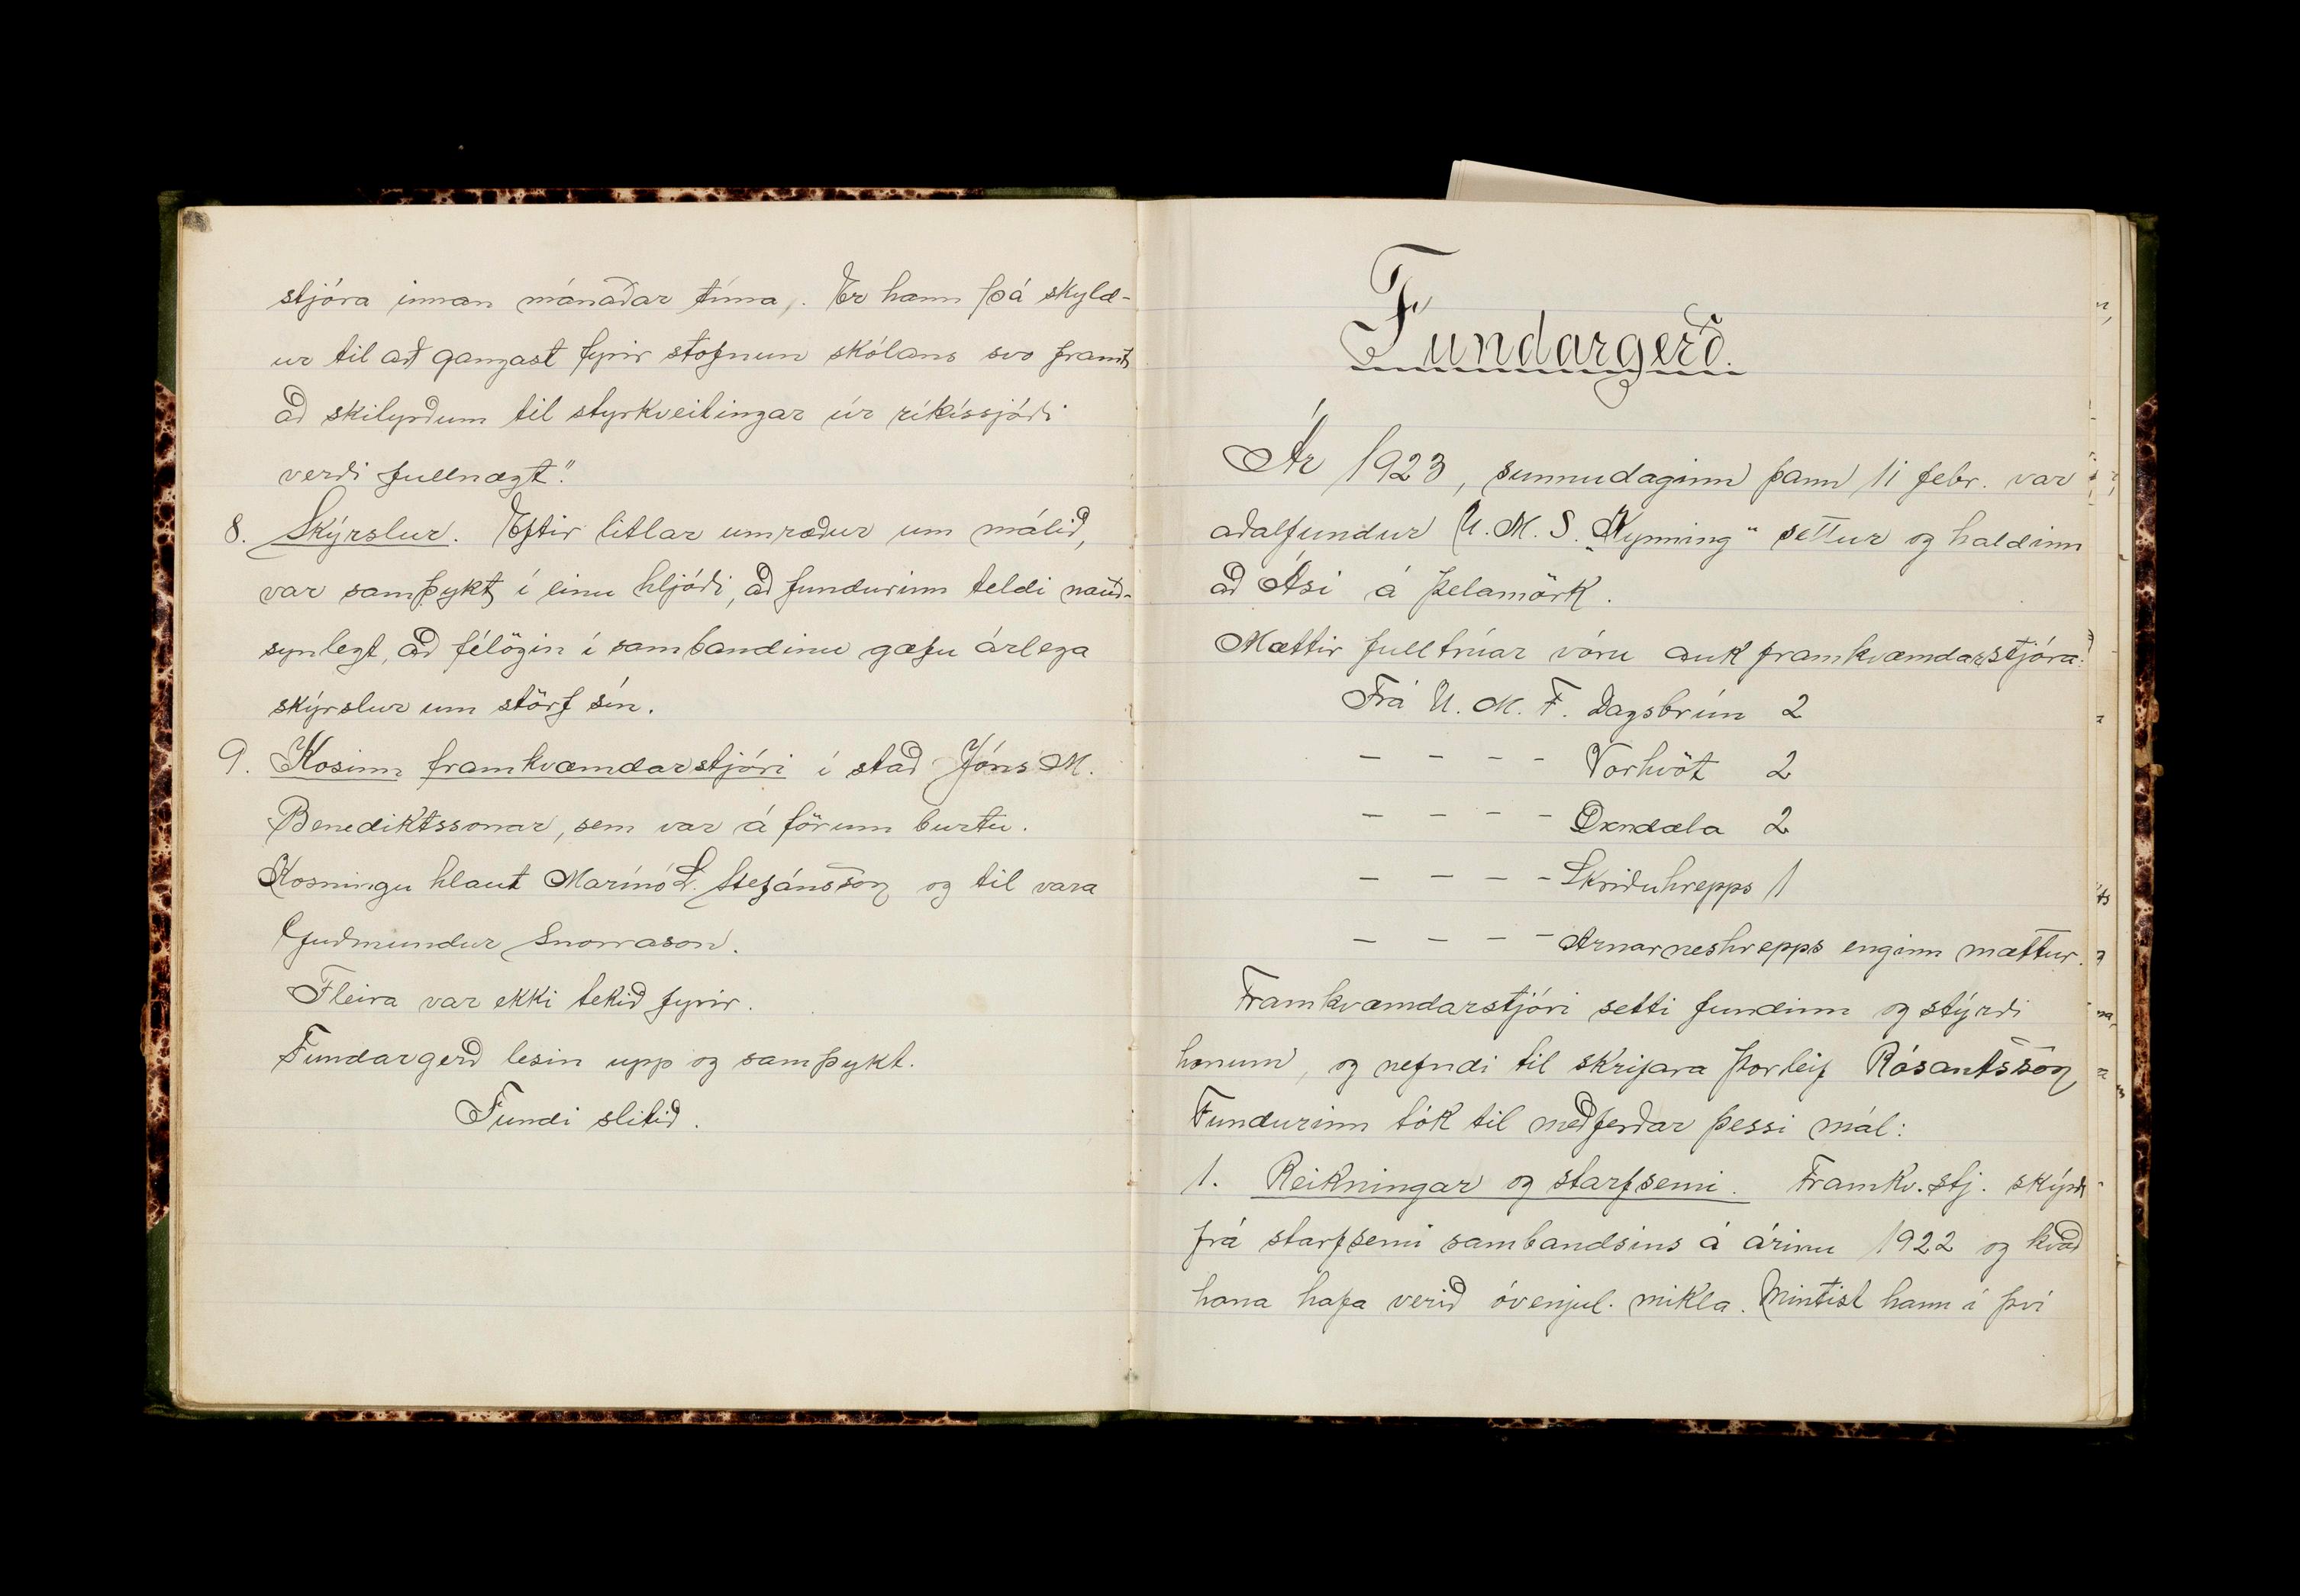 stjóra innan mánaðar tíma,. Er hann þá skyld-
ur til að gangast fyrir stofnun skólans svo framt
að skilyrðum til styrkveitingar úr ríkissjóði
verði fullnægt."
8. Skýrslur. Eftir litlar umræður um málið,
var samþykt í einu hljóði, að fundurinn teldi nauð-
synlegt, að félögin í sambandinu gæfu árlega
skýrslur um störf sín.
9. Kosinn framkvæmdarstjóri í stað Jóns M.
Benediktssonar, sem var á förum burtu.
Kosningu hlaut Marínó L. Stefánsson og til vara
Guðmundur Snorrason.
Fleira var ekki tekið fyrir.
Fundargerð lesin upp og samþykt.
Fundi slitið.
Fundargerð.
Ár 1923, sunnudaginn þann 11 febr. var
aðalfundur U.M.S. „Kynning" settur og haldinn
að Ási á Þelamörk.
Mættir fulltrúar vóru auk framkvæmdarstjóra:
Frá U. M. F. Dagsbrún 2
— — — — Vorhvöt 2
— — — — Öxndæla 2
— — — — Skriðuhrepps 1
— — — — Arnarneshrepps enginn mættur.
Framkvæmdarstjóri setti fundinn og stýrði
honum, og nefndi til skrifara Þorleif Rósantsson
Fundurinn tók til meðferðar þessi mál:
1. Reikningar og starfsemi. Framkv.stj. skýrði
frá starfsemi sambandsins á árinu 1922 og kvað
hana hafa verið óvenjul. mikla. Mintist hann í því